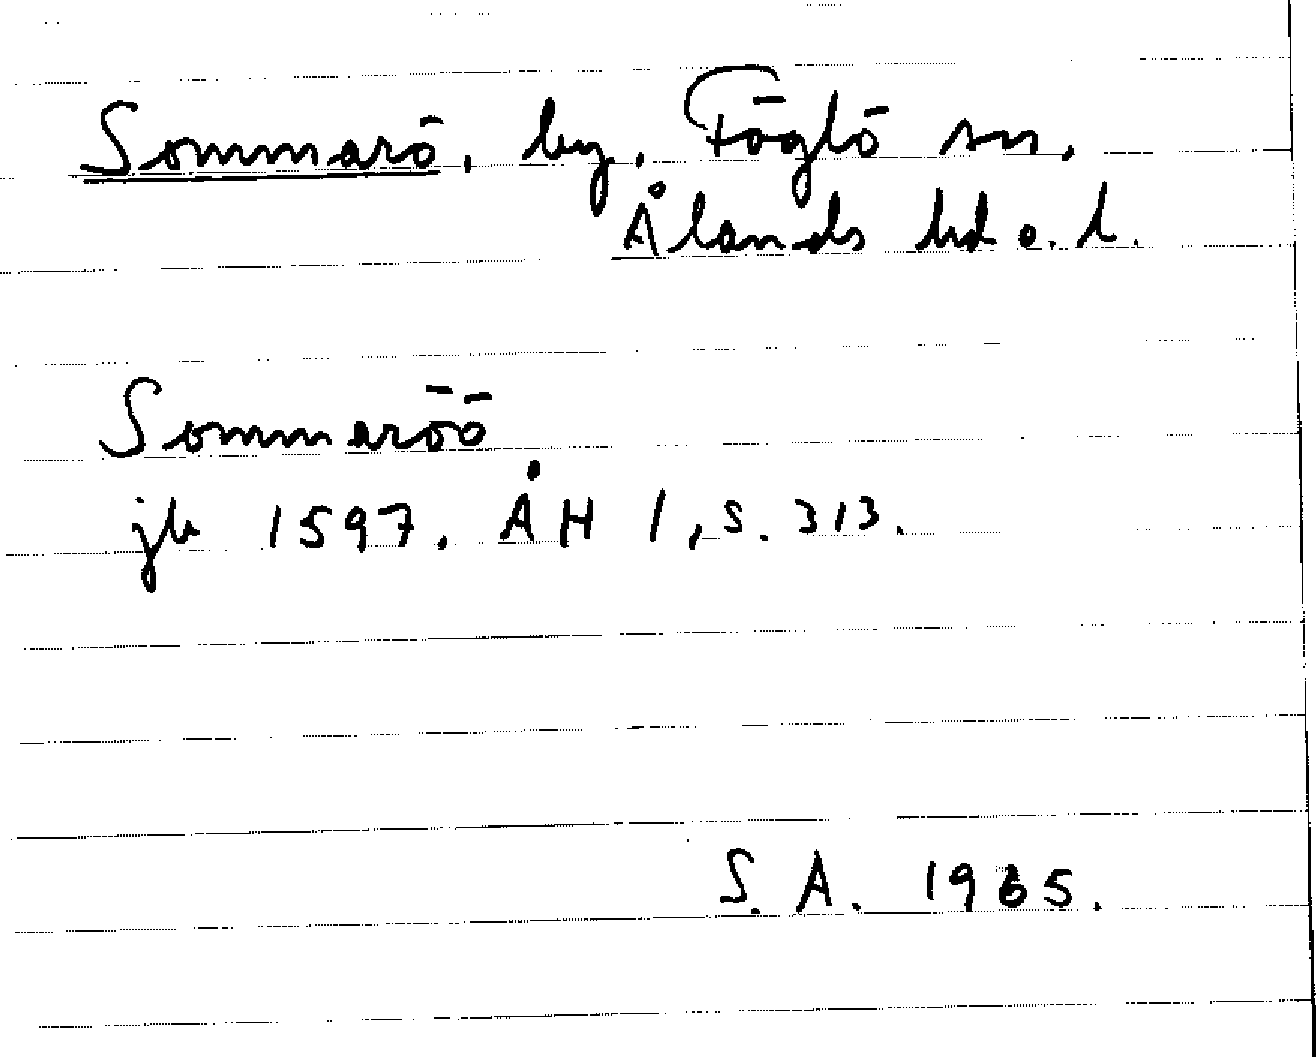 Sommarö, by, Föglö sn,
Ålands hd o. l.
Sommaröö
jb 1597. ÅH 1, s. 313.
S. A. 1965.